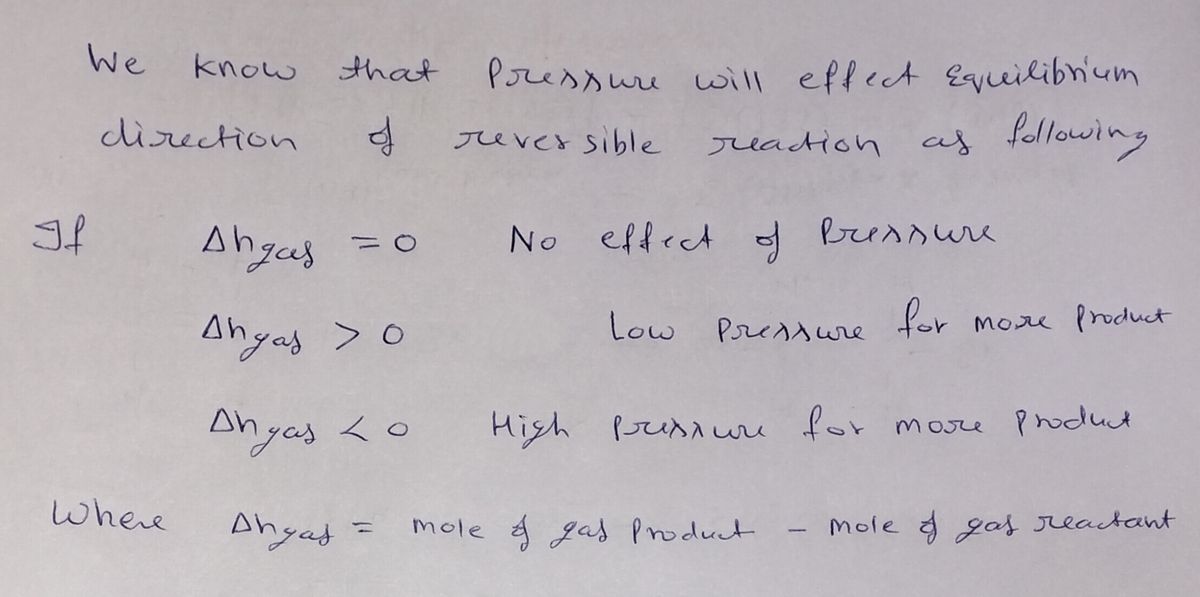 We know that Pressure will effect Equilibrium
direction of reversible reaction as following
If Δngas = 0 No effect of Pressure
Δngas > 0 Low Pressure for more Product
Δngas < 0 High Pressure for more Product
Where Δngas = mole of gas Product - mole of gas reactant